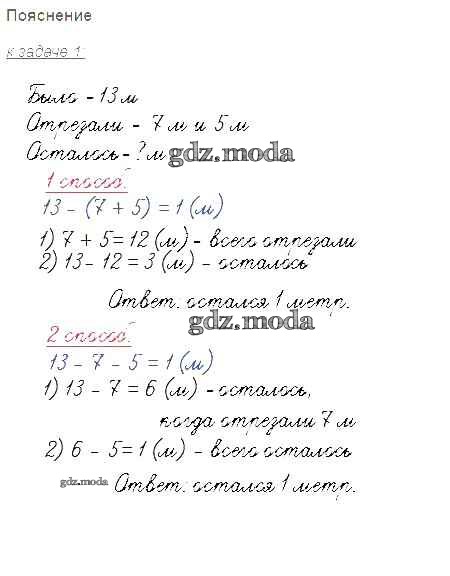 Пояснение
к задаче 1:
Было - 13 м
Отрезали - 7 м и 5 м
Осталось - ? м gdz.moda
1 способ:
13 - (7 + 5) = 1 (м)
1) 7 + 5 = 12 (м) - всего отрезали
2) 13 - 12 = 3 (м) - осталось
Ответ: остался 1 метр.
gdz.moda
2 способ:
13 - 7 - 5 = 1 (м)
1) 13 - 7 = 6 (м) - осталось,
когда отрезали 7 м
2) 6 - 5 = 1 (м) - всего осталось
gdz.moda Ответ: остался 1 метр.